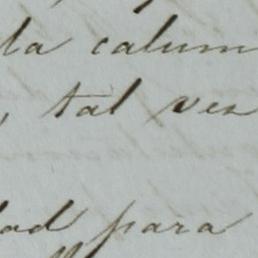 la calum
, tal vez
dad para